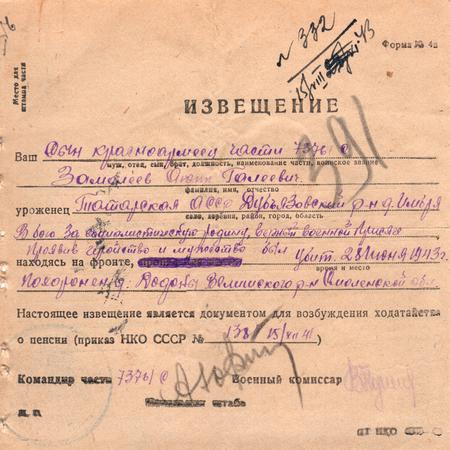 № 332
15/VIII 43
Форма № 4а
Место для
штампа части
ИЗВЕЩЕНИЕ
391
Ваш Сын красноармеец части 7376/С
муж, отец, сын, брат, должность, наименование части, воинское звание
Галеевич
фамилия, имя, отчество
уроженец Татарская АССР р-н д.
село, деревня, район, город, область
В бою за социалистическую родину, верный военной присяге
проявив геройство и мужество был убит 28 июня 1943 г.
находясь на фронте,
время и место
Похоронен д. р-н Смоленской обл.
Настоящее извещение является документом для возбуждения ходатайства
о пенсии (приказ НКО СССР № 138 15/III 41)
Командир части 7376/С Военный комиссар
штаба
М. П.